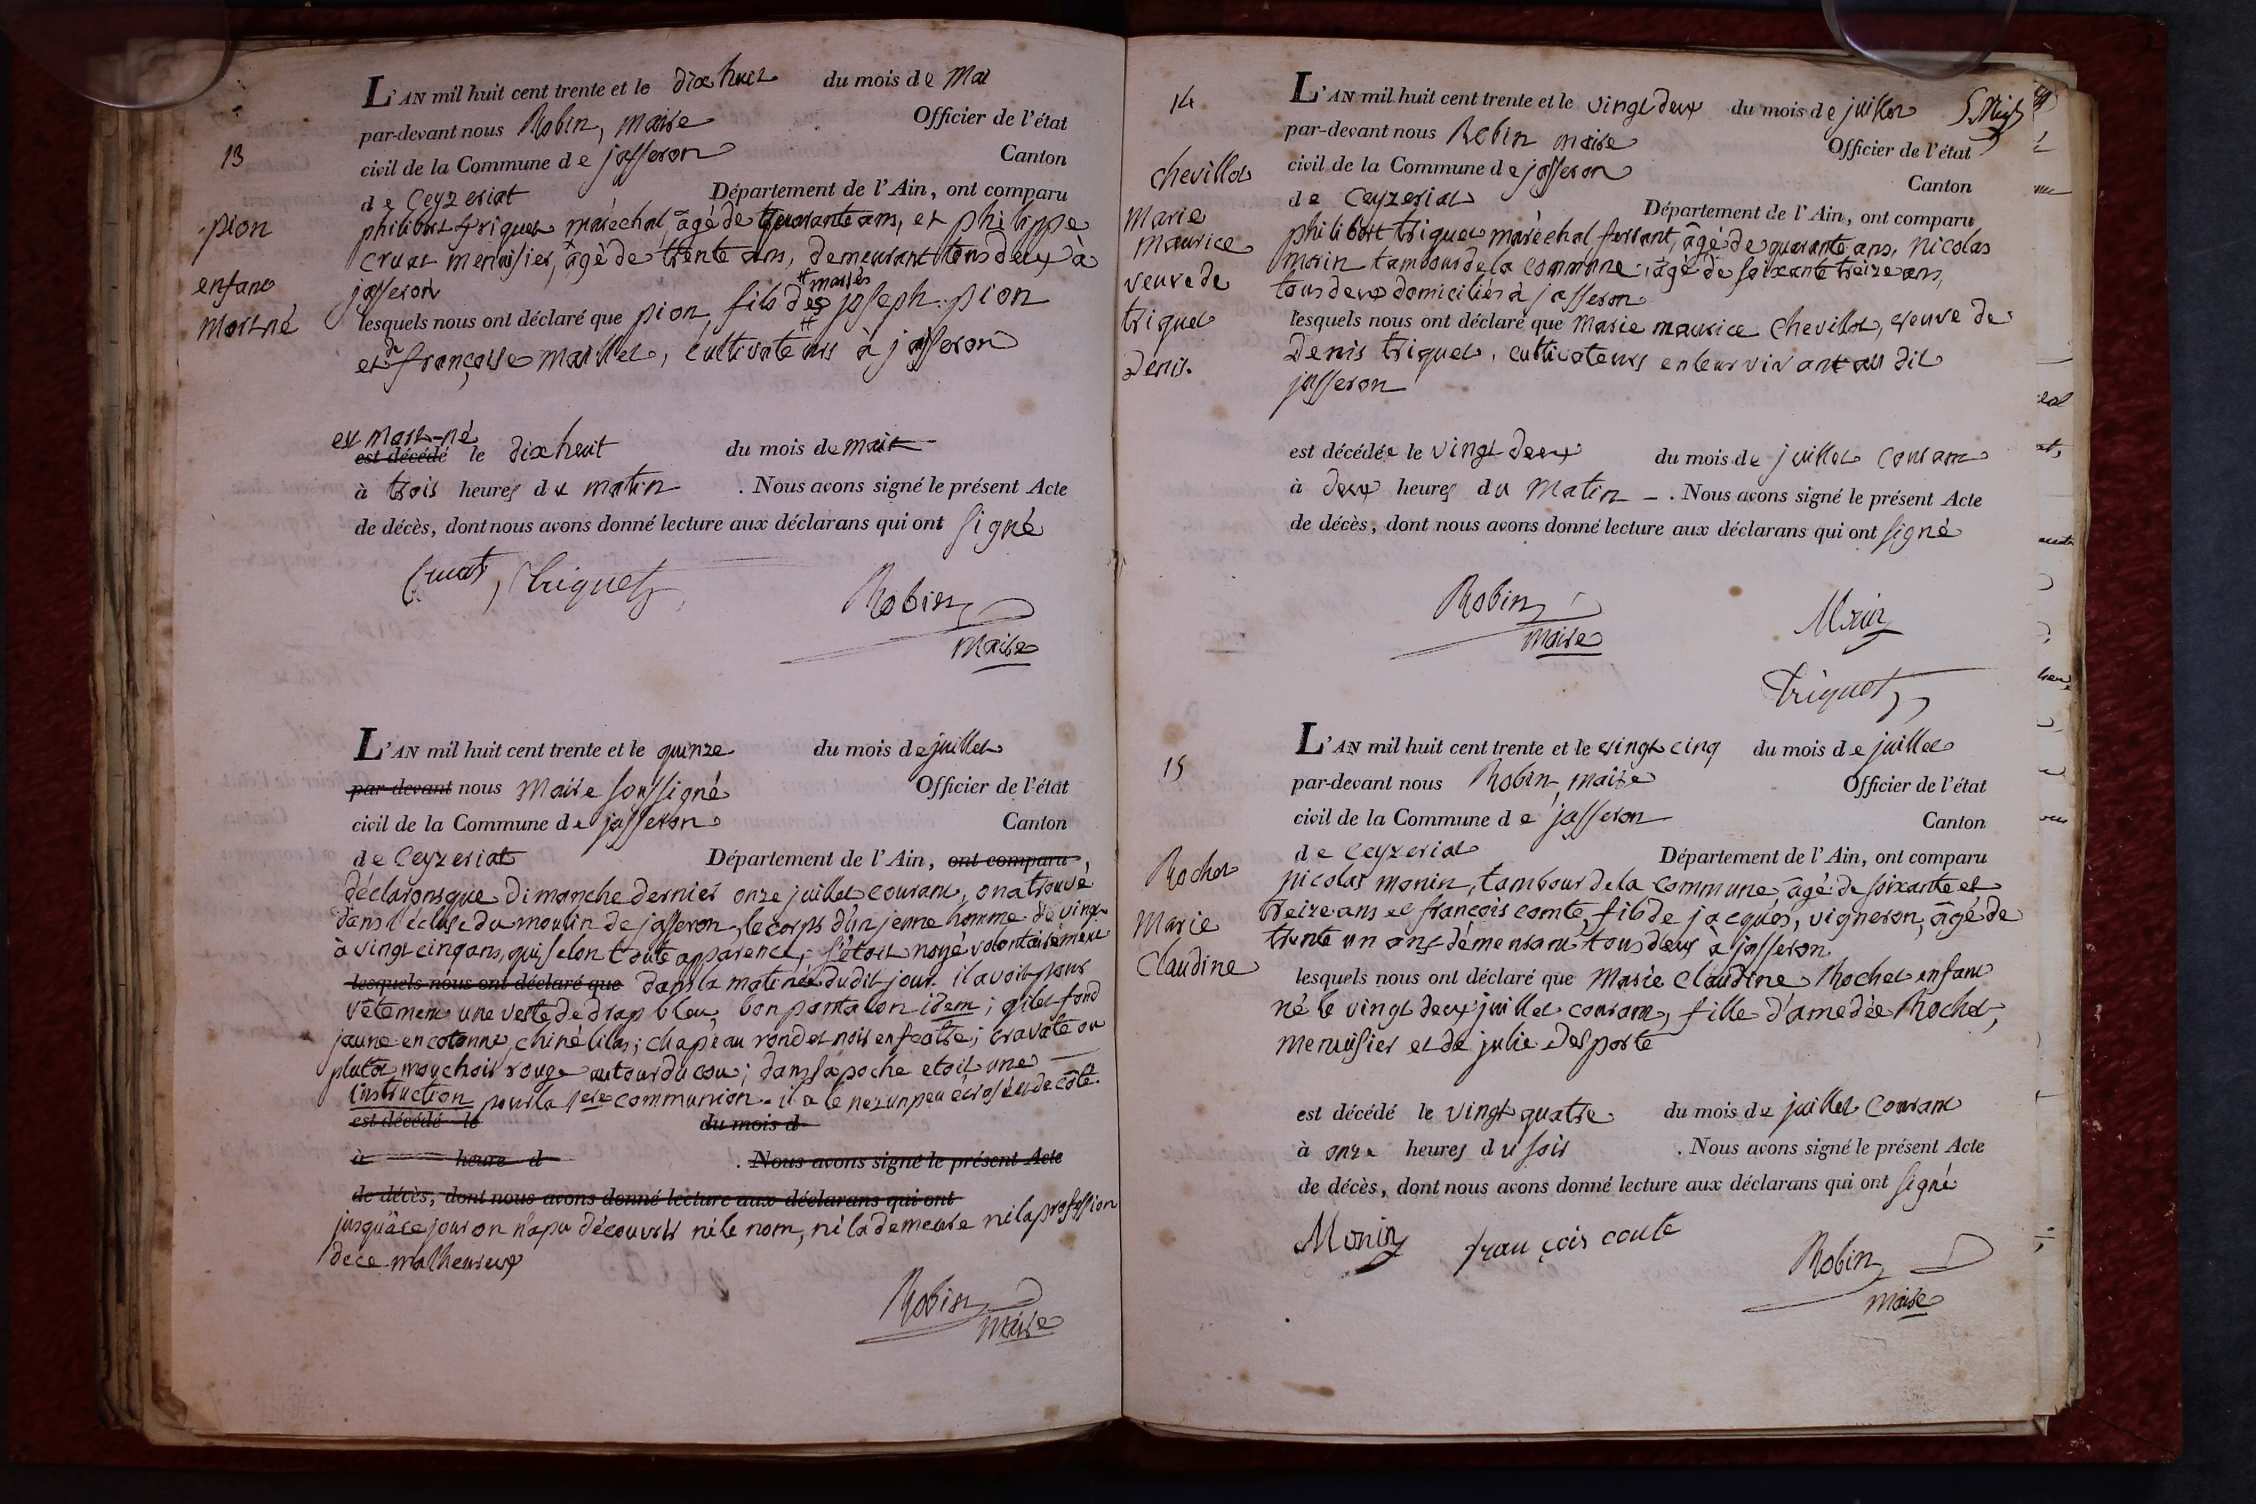 13
pion
enfant
mort né
L'AN mil huit cent trente et le dix huit du mois de Mai
par-devant nous Robin, maire Officier de l'état
civil de la Commune de jasseron Canton
de Ceyzeriat Département de l'Ain, ont comparu
philibert triquet maréchal, âgé de quarante ans, et philippe
cruat menuisier, âgé de trente ans, demeurant tous deux à
jasseron
mariés
lesquels nous ont déclaré que pion, fils des joseph pion
et de françoise maillet, cultivateurs à jasseron
est mort-né
est décédé le dix heuit du mois de mai
à trois heures du matin. Nous avons signé le présent Acte
de décès, dont nous avons donné lecture aux déclarans qui ont signé
Cruat, Triquet
Robin
maire
L'AN mil huit cent trente et le quinze du mois de juillet
par-devant nous Maire soussigné Officier de l'état
civil de la Commune de jasseron Canton
de Ceyzeriat Département de l'Ain, ont comparu,
déclarons que Dimanche dernier onze juillet courant, on a trouvé
dans l'écluse du moulin de jasseron, le corps d'un jeune homme de vingt
à vingt cinq ans, qui selon toute apparence, s'étoit noyé volontairement
lesquels nous ont déclaré que dans la matinée du dit jour. il avoit pour
vêtement une veste de drap bleu, bon pantalon idem; gilet fond
jaune en cotonne, chiné lilas; chapeau rond et noir en feutre; cravate ou
plutôt mouchoir rouge autour du cou; dans sa poche etoit une
instruction pour la 1ere communion. il a le nez un peu écrasé et de côté.
est décédé le du mois d
à heure d . Nous avons signé le présent Acte
de décès, dont nous avons donné lecture aux déclarans qui ont
jusqu'à ce jour on n'a pu découvrir ni le nom, ni la demeure ni la profession
de ce malheureux
Robin
maire
14
chevillot
Marie
maurice
veuve de
triquet
Denis.
L'AN mil huit cent trente et le vingt deux du mois de juillet
par-devant nous Robin maire Officier de l'état
civil de la Commune de jasseron Canton
de Ceyzeriat Département de l'Ain, ont comparu
philibert triquet maréchal ferrant, âgé de quarante ans, nicolas
monin tambour de la commune, âgé de soixante treize ans,
tous deux domiciliés à jasseron
lesquels nous ont déclaré que Marie maurice Chevillot, veuve de
Denis triquet, cultivateurs en leur vivant au dit
jasseron
est décédée le vingt deux du mois de juillet courant
à deux heures du Matin. Nous avons signé le présent Acte
de décès, dont nous avons donné lecture aux déclarans qui ont signé
Robin
maire
Monin
Triquet
15
Rochet
Marie
Claudine
L'AN mil huit cent trente et le vingt cinq du mois de juillet
par-devant nous Robin, maire Officier de l'état
civil de la Commune de jasseron Canton
de Ceyzeriat Département de l'Ain, ont comparu
nicolas monin, tambour de la commune, âgé de soixante et
treize ans et françois comte, fils de jacques, vigneron, âgé de
trente un ans demeurant tous deux à jasseron
lesquels nous ont déclaré que Marie Claudine Rochet enfant
né le vingt deux juillet courant, fille d'amedée Rochet,
menuisier et de julie Desporte
est décédé le vingt quatre du mois de juillet courant
à onze heures du soir. Nous avons signé le présent Acte
de décès, dont nous avons donné lecture aux déclarans qui ont signé
Monin françois conte
Robin
maire